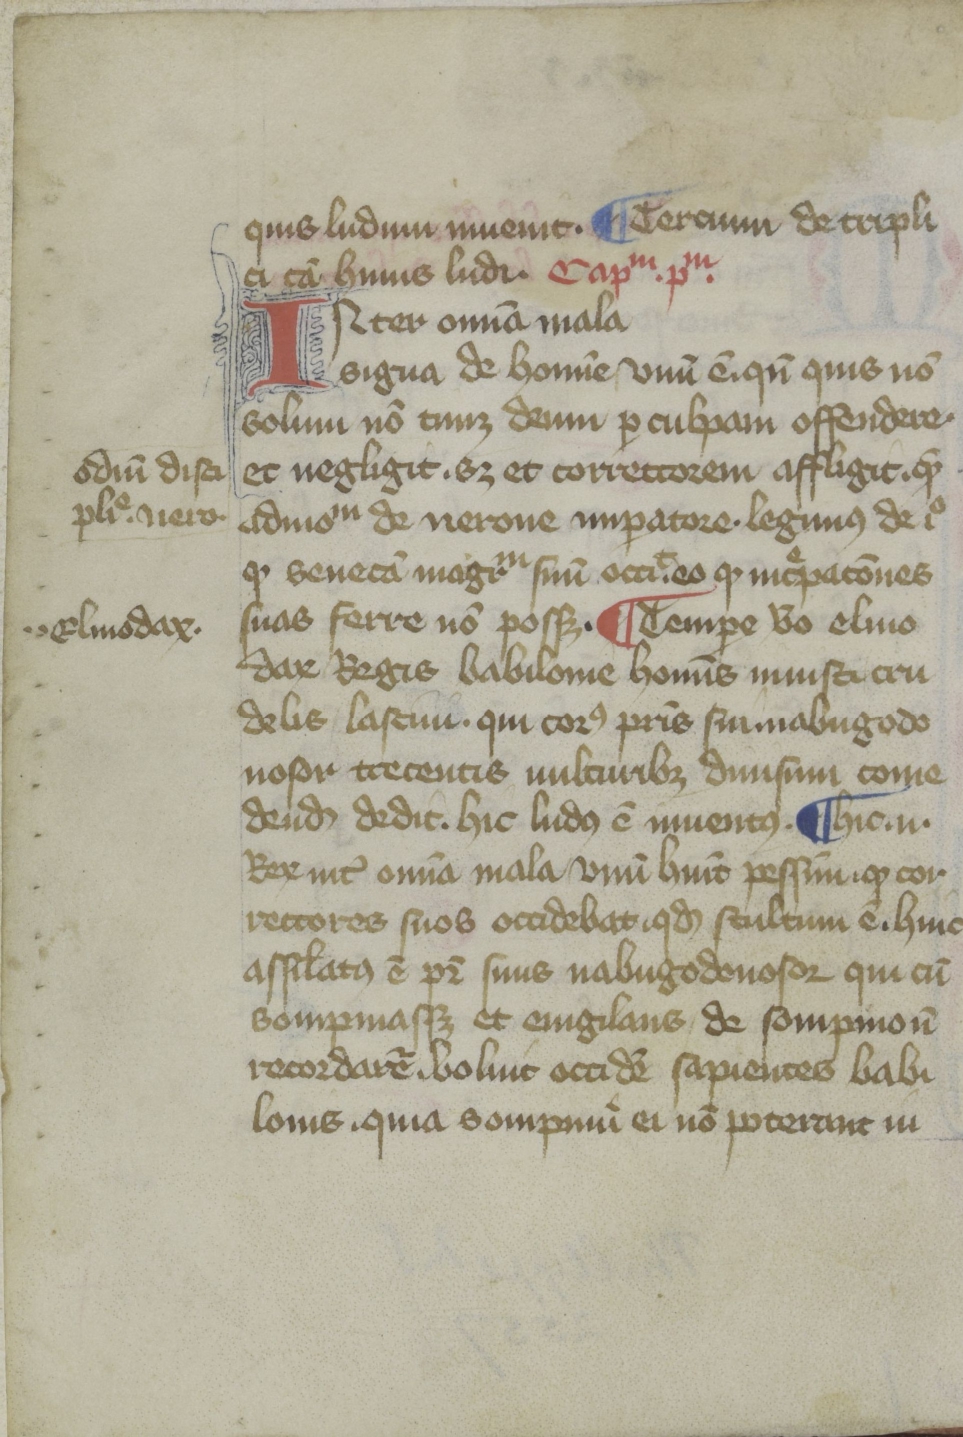 quis ludum inuenit. ¶ Tercium de tripli
ci cā huius ludi. Capᵐ. pᵐ.
INter omīa mala
signa de homīe vnū ē. qn̄ quis nō
solum nō timꝫ deum ꝑ culpam offendere.
et negligit. sꝫ et correctorem affligit. ꝙ
odiū disci
plīe. nero.
admoᵐ de nerone impatore. legimꝰ de iº
ꝙ senecā magrᵐ suū occit. eo ꝙ increpatōnes
suas ferre nō possꝫ. ¶ Tempe vo elmo
Elmodax.
dax Regis babilonie homīs iniusti cru
delis lasciui. qui corꝰ pr̄is sui. nabugodo
nosor trecentis vulturibꝫ diuisum come
dendū dedit. hic ludꝰ ē inuentꝰ. ¶ hic. n.
Rex int̄ omīa mala vnū huīt pessimū. ꝙ cor
rectores suos occidebat. qd̄ stultum ē. huic
assilatꝰ ē pr̄ suus nabugodonosor qui cū
sompniassꝫ et euigilans de sompnio n̄
recordaret̄. voluit occidē sapientes babi
lonis. quia sompniū ei nō poterant in